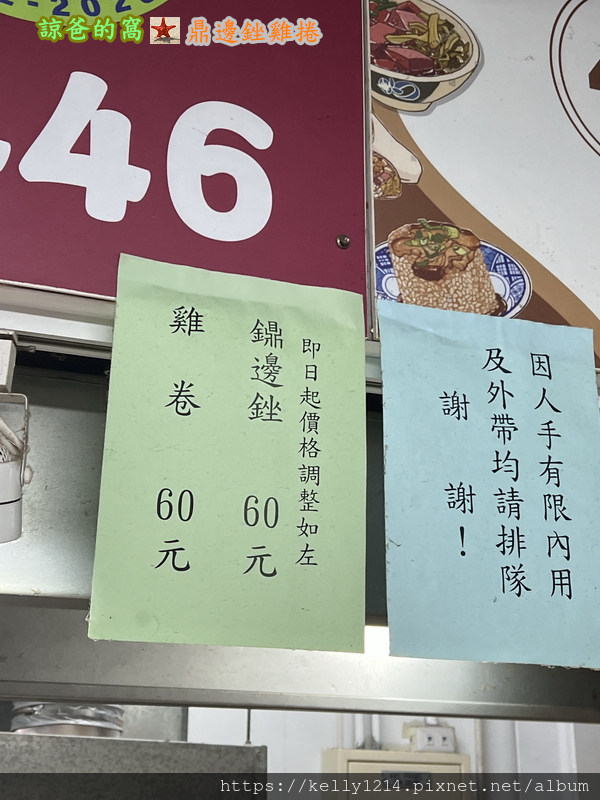 2-2026
諒爸的窩 鼎邊銼雞捲
46
即日起價格調整如左
鐤邊銼 60元
雞卷 60元
因人手有限內用
及外帶均請排隊
謝謝！
https://kelly1214.pixnet.net/album